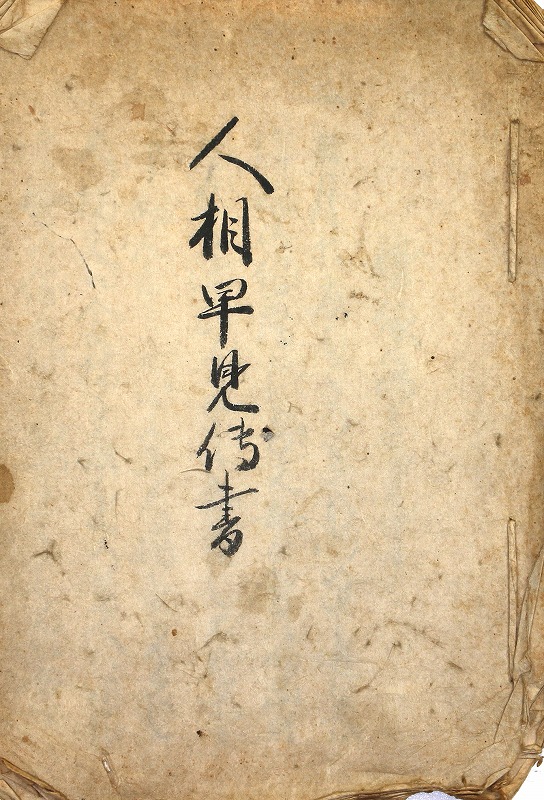 人相早見傳書